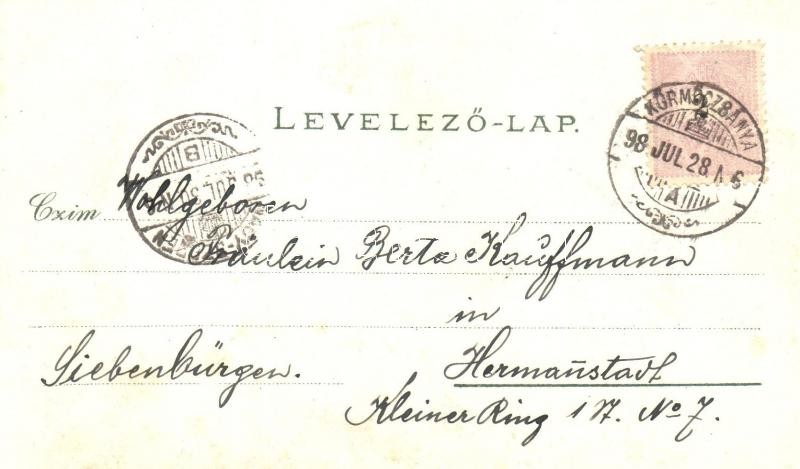 LEVELEZŐ-LAP.
KÖRMÖCZBÁNYA
98 JUL 28
A
B
Czim
Wohlgeboren
Fräulein Berta Kauffmann
in
Siebenbürgen.
Herman̄stadt
Kleiner Ring 1 St. No 7.